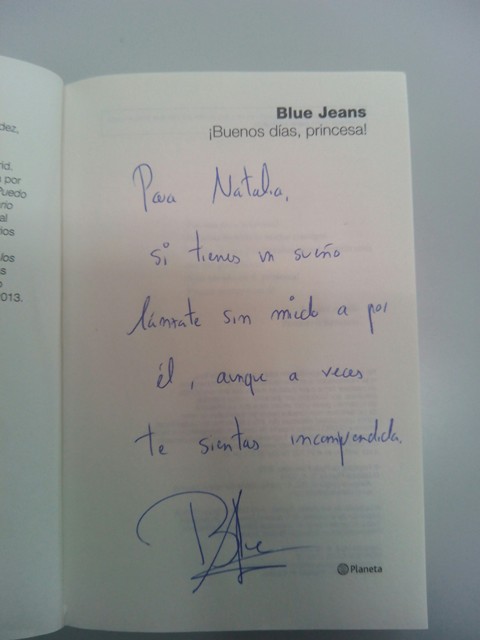 dez,
rid.
por
Puedo
rio
al
ios
los
s
o
2013.
Blue Jeans
¡Buenos días, princesa!
Para Natalia,
si tienes un sueño
lánzate sin miedo a por
él, aunque a veces
te sientas incomprendida.
Blue
Planeta